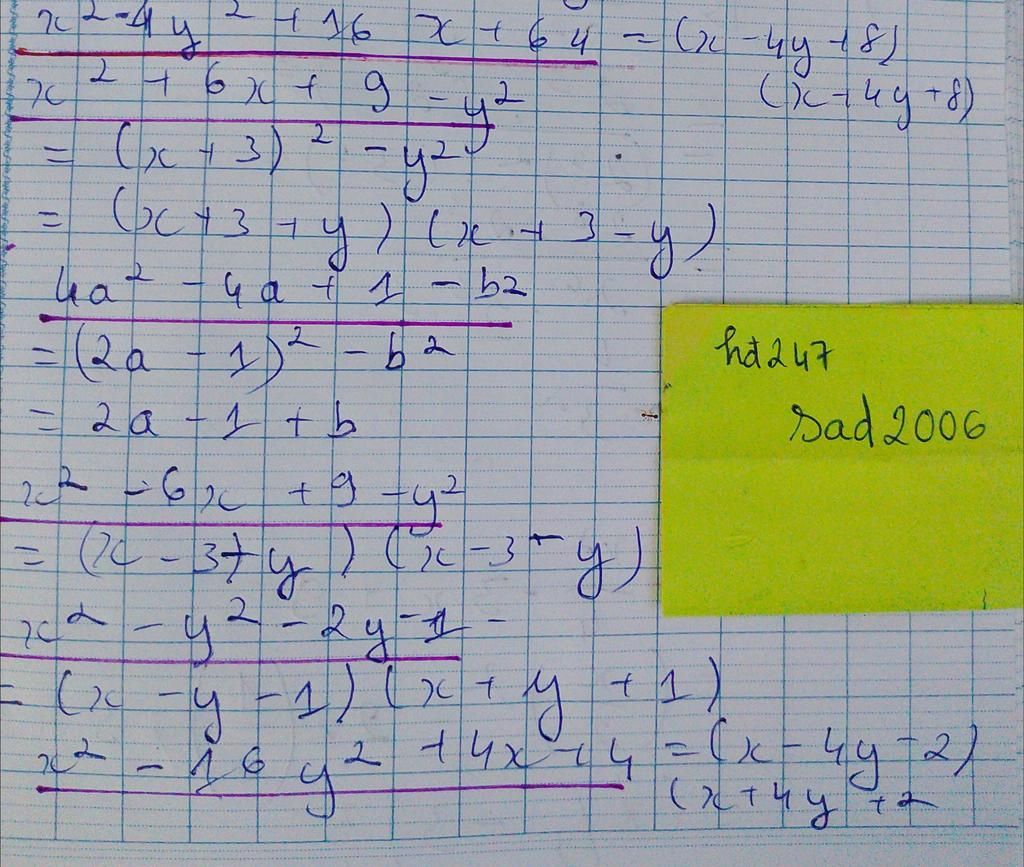 x² - 4y² + 16 x + 64 = (x - 4y + 8)
(x + 4y + 8)
x² + 6x + 9 - y²
= (x + 3)² - y²
= (x + 3 + y) (x + 3 - y)
4a² - 4a + 1 - b2
= (2a - 1)² - b²
= 2a - 1 + b
x² - 6x + 9 - y²
= (x - 3 + y) (x - 3 - y)
x² - y² - 2y - 1 -
= (x - y - 1) (x + y + 1)
x² - 16 y² + 4x + 4 = (x - 4y + 2)
(x + 4y + 2
hd247
sad2006